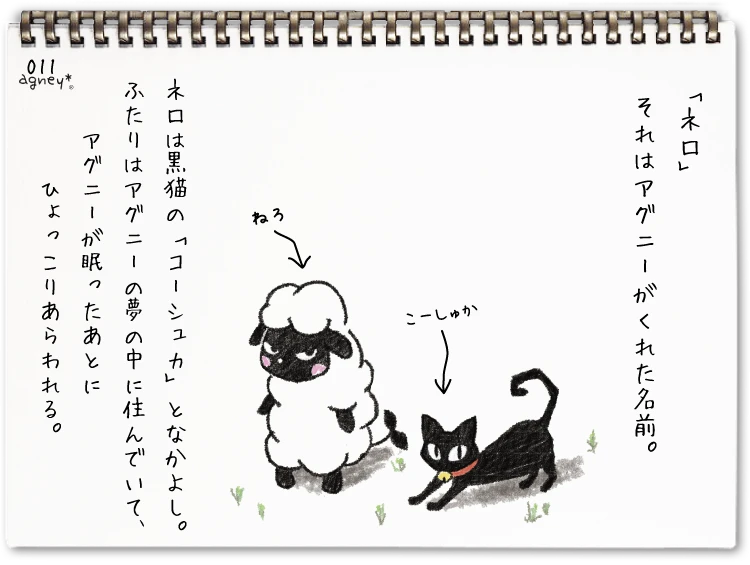 011
agney*®
「ネロ」
それはアグニーがくれた名前。
ねろ
こーしゅか
ネロは黒猫の「コーシュカ」となかよし。
ふたりはアグニーの夢の中に住んでいて、
アグニーが眠ったあとに
ひょっこりあらわれる。